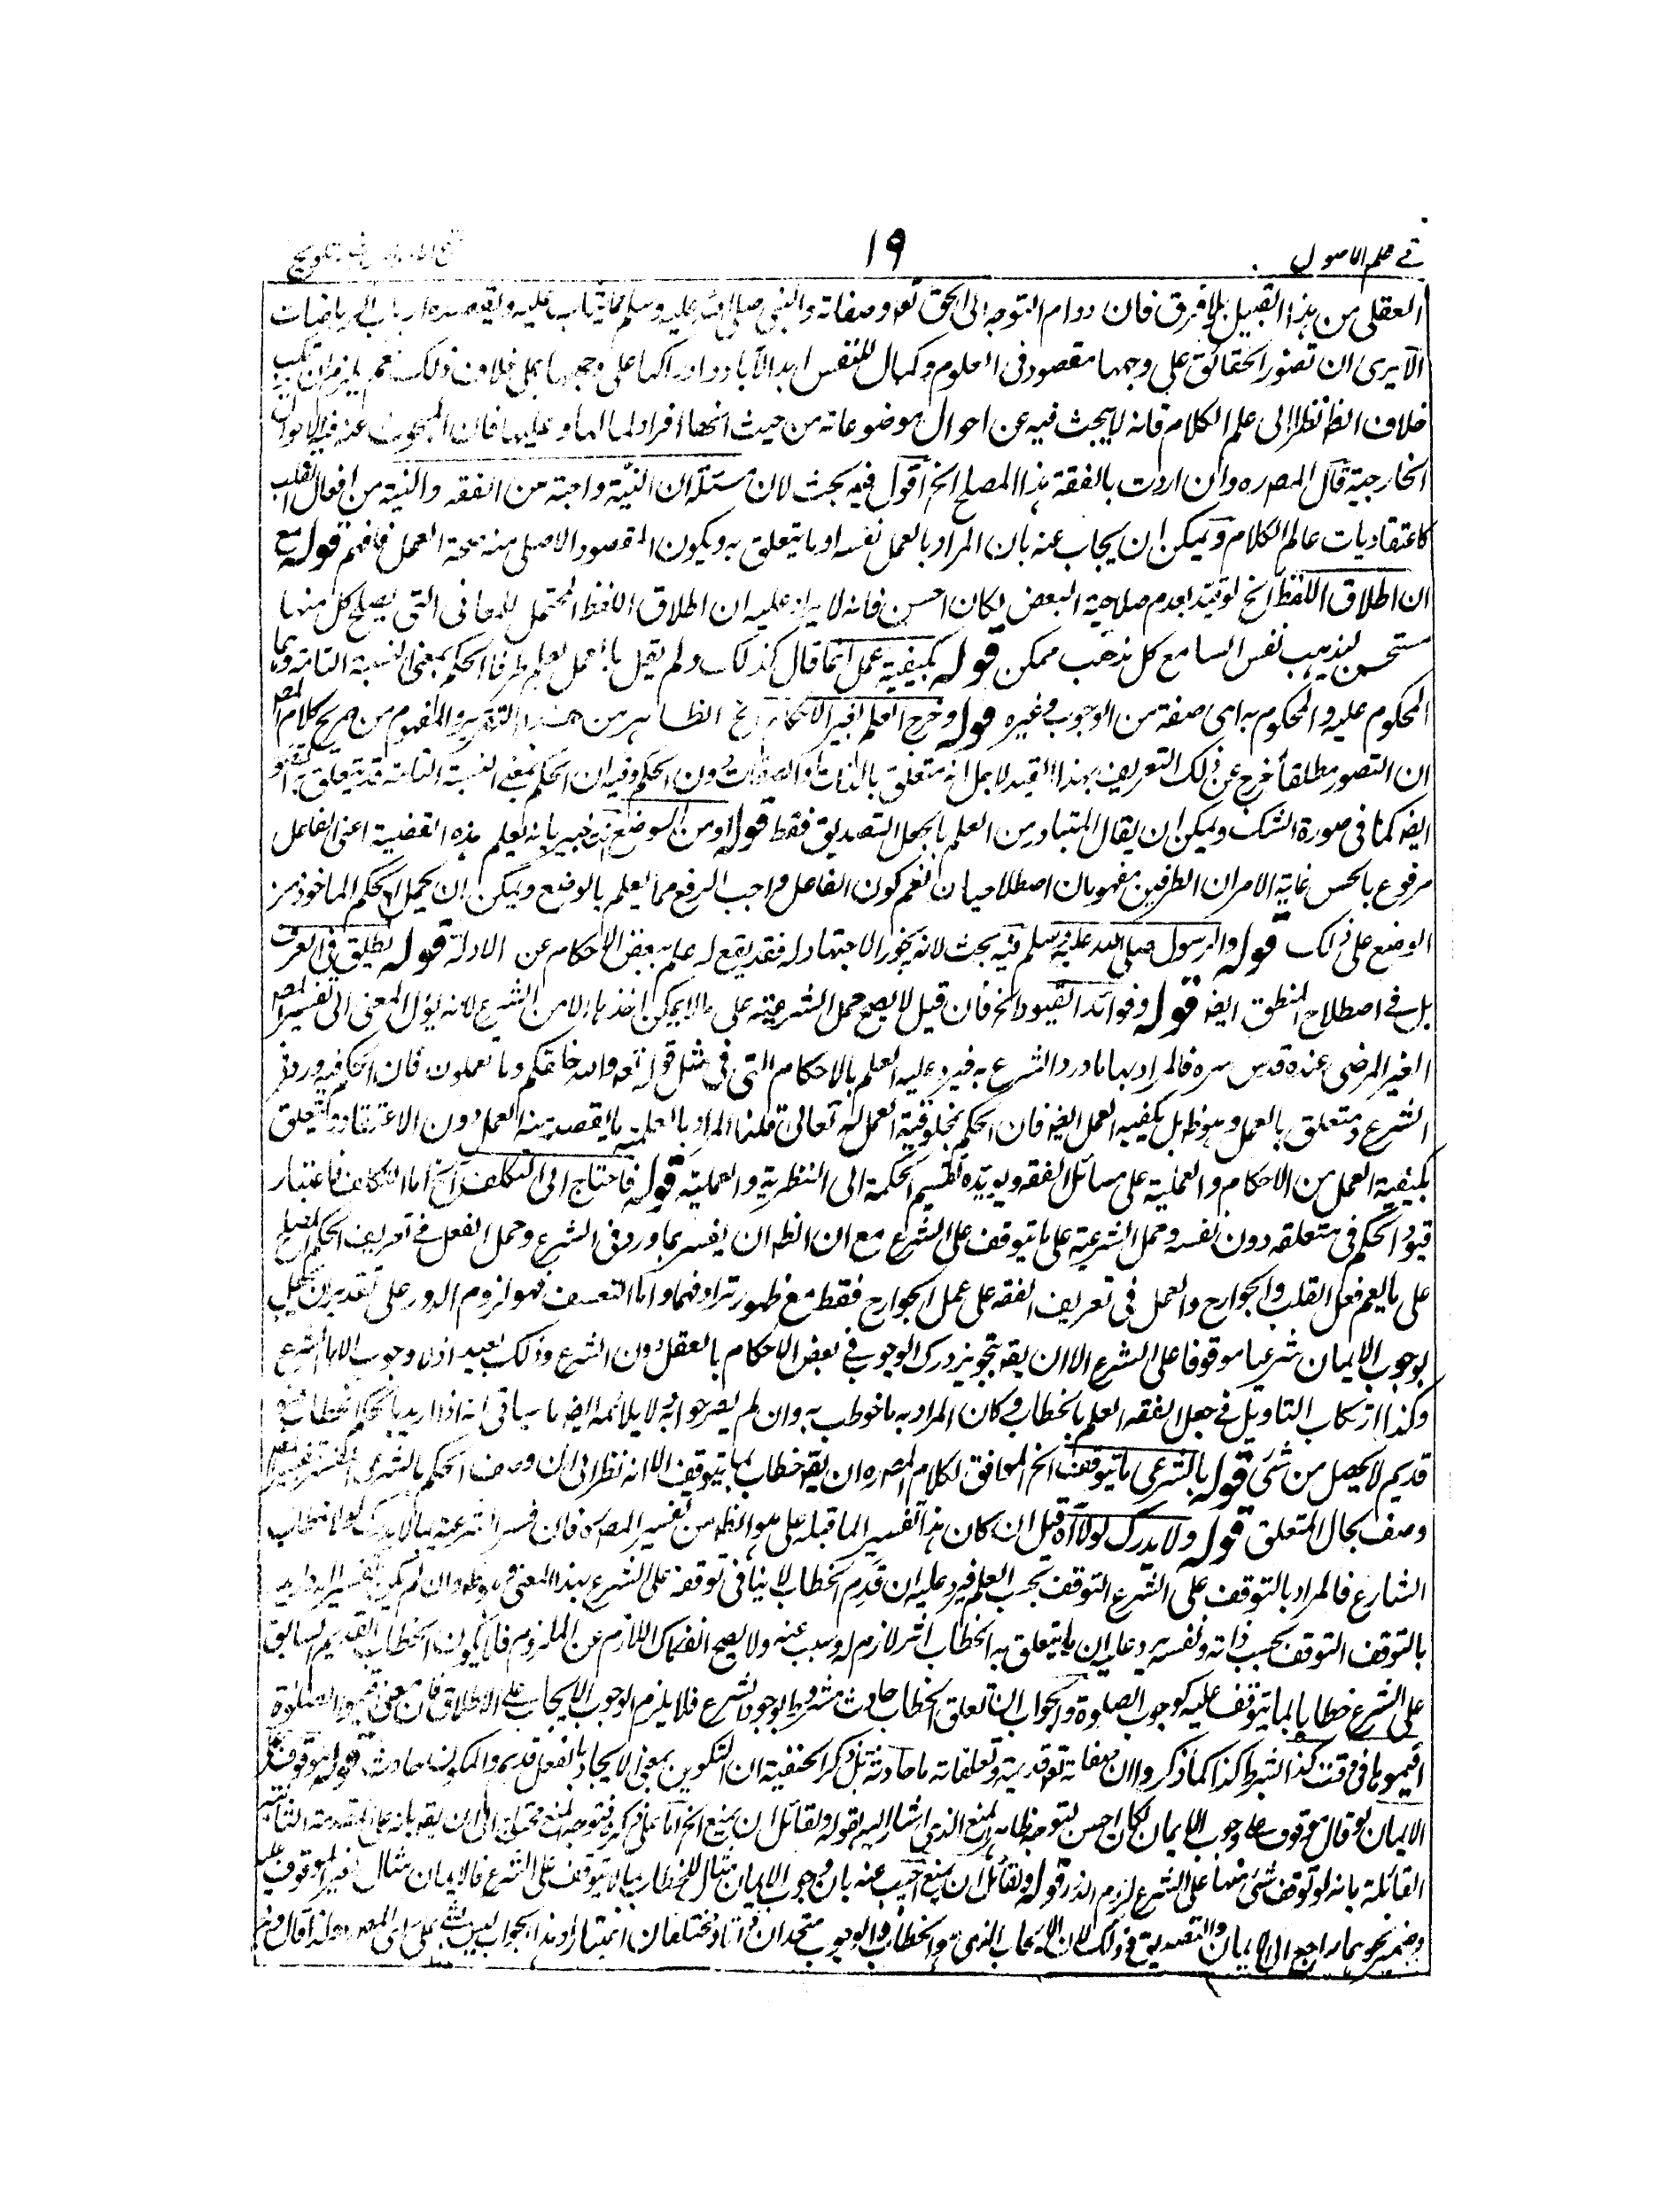 في علم الاصول
١٩
العقلي من هذا القبيل بلا فرق فان دوام التوجه الى الحق تعه وصفاته والنبي صلى الله عليه وسلم مما يثاب عليه ويقصده ارباب الرياضات
الا يرى ان تصور الحقائق على وجهها مقصود في العلوم وكمال للنفس ابد الآباد وادراكها على وجهها على خلاف ذلك نعم يلزم ان
خلاف الظ نظرا الى علم الكلام فانه لا يبحث فيه عن احوال موضوعاته من حيث انها افراد لما لها وعليها فان المبحوث عنه فيه الاحوال
الخارجية قال المصره وان اردت بالفقه هذا المصطلح الخ اقول فيه بحث لان مسئلة ان النية واجبة من الفقه والنية من افعال القلب
كاعتقاديات عالم الكلام ويمكن ان يجاب عنه بان المراد بالعمل نفسه او ما يتعلق به ويكون المقصود الاصلي منه صحة العمل فافهم قوله مع
ان اطلاق اللفظ الخ لو قيد بعدم صلاحية البعض لكان احسن فانه لا يرد عليه ان اطلاق اللفظ المحتمل للمعاني التي يصلح كل منها
مستحسن ليذهب نفس السامع كل مذهب ممكن قوله بكيفية عمل انما قال كذلك ولم يقل بالعمل ليعلم طرفا الحكم بمعنى النسبة التامة وهما
المحكوم عليه والمحكوم به اى صفته من الوجوب وغيره قوله وخرج العلم بغير الاحكام الخ الظاهر من هذا التقرير والمفهوم من صريح كلام المص
ان التصور مطلقا خرج عن ذلك التعريف بهذا القيد لاجل انه متعلق بالذات والصفات دون الحكم وفيه ان الحكم بمعنى النسبة التامة قد يتعلق به التصور
ايضه كما في صورة الشك ويمكن ان يقال المتبادر من العلم بالحكم التصديق فقط قوله او من الوضع انت خبير بانه يعلم هذه القضية اعنى الفاعل
مرفوع بالحس غاية الامر ان الطرفين مفهومان اصطلاحيان نعم كون الفاعل واجب الرفع مما يعلم بالوضع ويمكن ان يحمل الحكم الماخوذ من
الوضع على ذلك قوله والرسول صلى الله عليه وسلم فيه بحث لانه يجوز الاجتهاد له فقد يقع له علم بعض الاحكام عن الادلة قوله يطلق في العرف
بل في اصطلاح المنطق ايضه قوله وفوائد القيود الخ فان قيل لا يصح حمل الشرعية على ما لا يمكن اخذها الا من الشرع لانه يؤل المعنى الى تفسير المص
الغير المرضى عنده قدس سره فالمراد بها ما ورد الشرع به فيرد عليه العلم بالاحكام التي في مثل قوله تعه والله خلقكم وما تعملون فان الحكم فيه ورد في
الشرع ومتعلق بالعمل وهو ظ بل بكيفية العمل ايضه فان الحكم بمخلوقية العمل لله تعالى قلنا المراد بالعملية ما يقصد منه العمل دون الاعتقاد ويتعلق
بكيفية العمل من الاحكام والعملية على مسائل الفقه ويويده تقسيم الحكمة الى النظرية والعملية قوله فاحتاج الى التكلف الخ اما التكلف فاعتبار
قيود الحكم في متعلقه دون نفسه وحمل الشرعية على ما يتوقف على الشرع مع ان الظ ان يفسر بما ورد في الشرع وحمل الفعل في تعريف الحكم المصطلح
على ما يعم فعل القلب والجوارح والعمل في تعريف الفقه على عمل الجوارح فقط مع ظهور ترادفهما واما التعسف فهو لزوم الدور على تقدير ان يكون
لوجوب الايمان شرعيا موقوفا على الشرع الا ان يقه بتجويز درك الوجوب في بعض الاحكام بالعقل دون الشرع وذلك بعيد اذ لا وجوب الا بالشرع
وكذا ارتكاب التاويل في جعل الفقه العلم بالخطاب وكان المراد به ما خوطب به وان لم يصرحوا به ولا يلائمه ايضه ما سياتي انه اذا اريد بالحكم الخطاب فهو
قديم لا يحصل من شئ قوله بالشرعى ما يتوقف الخ الموافق لكلام المصره ان يقه خطاب بما يتوقف الا انه نظر الى ان وصف الحكم بالشرعى
وصف بحال المتعلق قوله ولا يدرك لولا اه قيل ان كان هذا تفسيرا لما قبله على ما هو الظ من تفسير المصره فان فسر الشرعية بما لا يدرك لولا خطاب
الشارع فالمراد بالتوقف على الشرع التوقف بحسب العلم فيرد عليه ان قدم الخطاب لا ينافى توقفه على الشرع بهذا المعنى وان لم يكن تفسيرا
بالتوقف التوقف بحسب ذاته ونفسه يرد عليه ان ما يتعلق به الخطاب اثر لازم له ومسبب عنه ولا يصح انفكاك اللازم عن الملزوم فلا يكون الخطاب القديم السابق
على الشرع خطابا بما يتوقف عليه كوجوب الصلوة والجواب ان تعلق الخطاب حادث مشروط بوجود الشرع فلا يلزم الوجوب الايجاب على الاطلاق فان معنى اقيموا الصلوة
اقيموها في وقت كذا بشرط كذا كما ذكروا ان صفاته تعه قديمة وتعلقاتها حادثة بل ذكر الحنفية ان التكوين بمعنى الايجاد بالفعل قديم والمكون حادث قوله
الايمان لو قال موقوف على وجوب الايمان لكان احسن لتوجه المنع الذي اشار اليه بقوله ولقائل ان يمنع الخ
القائلة بانه لو توقف شئ منها على الشرع لزم الدور قوله ولقائل ان يمنع اجيب عنه بان وجوب الايمان مثال للخطاب بما لا يتوقف على الشرع فالايمان مثال لغير الموقوف عليه
وضمير نحوهما راجع الى الايمان والتصديق في ذلك لان الايجاب الذي هو الخطاب والوجوب متحدان ذاتا ومختلفان اعتبارا وهذا الجواب ليس بشئ